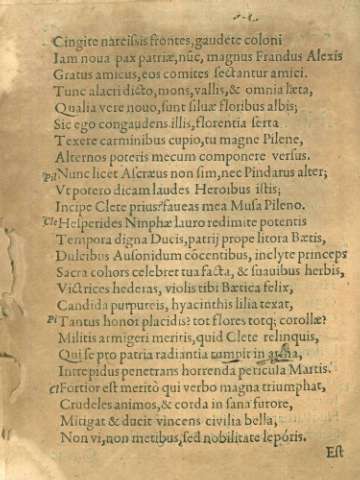 Cingite narcissis frontes, gaudete coloni
Iam noua pax patriæ, nũc, magnus Frandus Alexis
Gratus amicus, eos comites sectantur amici.
Tunc alacri dicto, mons, vallis, & omnia læta,
Qualia vere nouo, sunt siluæ floribus albis;
Sic ego congaudens illis, florentia serta
Texere carminibus cupio, tu magne Pilene,
Alternos poteris mecum componere versus.
Pil Nunc licet Ascræus non sim, nec Pindarus alter;
Vt potero dicam laudes Heroibus istis;
Incipe Clete prius? faueas mea Musa Pileno.
Cle Hesperides Nimphæ lauro redimite potentis
Tempora digna Ducis, patrij prope litora Bætis,
Dulcibus Ausonidum cõcentibus, inclyte princeps
Sacra cohors celebret tua facta, & suauibus herbis,
Victrices hederas, violis tibi Bætica felix,
Candida purpureis, hyacinthis lilia texat,
Pi Tantus honor placidis? tot flores totq; corollæ?
Militis armigeri meritis, quid Clete relinquis,
Qui se pro patria radiantia rumpit in arma,
Intrepidus penetrans horrenda pericula Martis.
Cl Fortior est meritò qui verbo magna triumphat,
Crudeles animos, & corda in sana furore,
Mitigat & ducit vincens civilia bella,
Non vi, non metibus, sed nobilitate lepóris.
Est